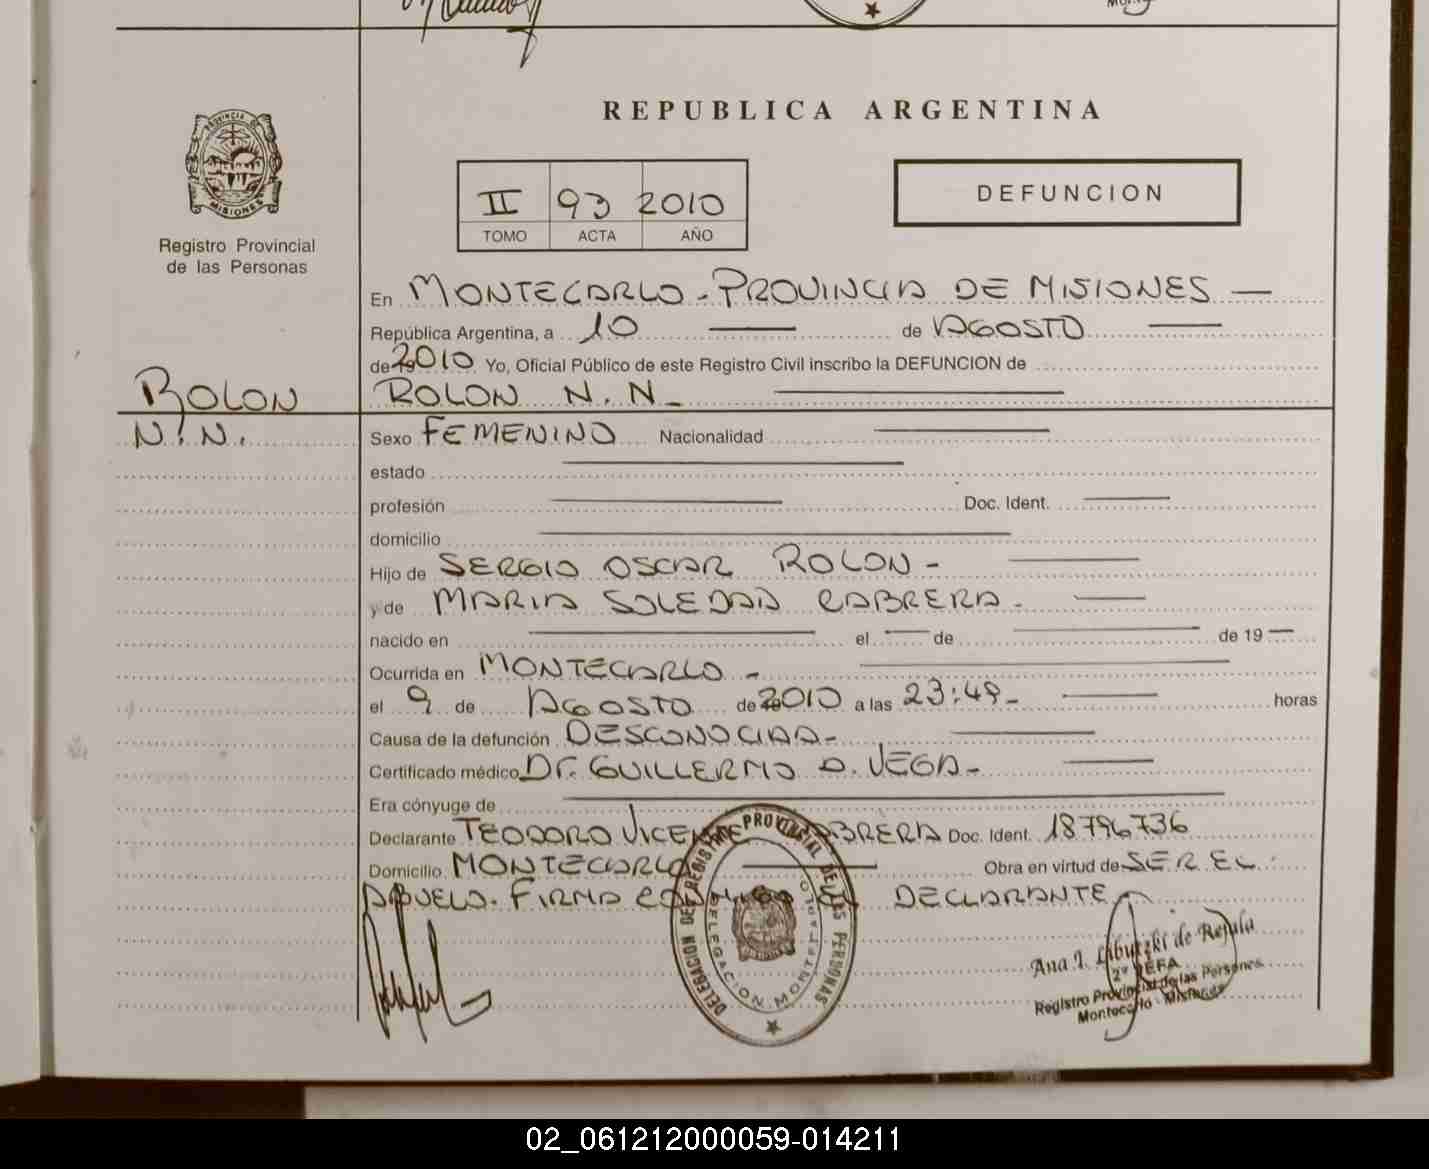 REPUBLICA ARGENTINA
PROVINCIA DE
MISIONES
Registro Provincial
de las Personas
II 93 2010
TOMO ACTA AÑO
DEFUNCION
En MONTECARLO - PROVINCIA DE MISIONES —
República Argentina, a 10 — de AGOSTO —
de 2010 Yo, Oficial Público de este Registro Civil inscribo la DEFUNCION de
ROLON
ROLON N. N. —
N. N.
Sexo FEMENINO Nacionalidad —
estado —
profesión — Doc. Ident. —
domicilio —
Hijo de SERGIO OSCAR ROLON - —
y de MARIA SOLEDAD CABRERA - —
nacido en — el — de — de 19 —
Ocurrida en MONTECARLO - —
el 9 de AGOSTO de 2010 a las 23:49 - — horas
Causa de la defunción DESCONOCIDA - —
Certificado médico DR. GUILLERMO D. VEGA - —
Era cónyuge de —
Declarante TEODORO VICENTE CABRERA Doc. Ident. 18796736
Domicilio MONTECARLO — Obra en virtud de SER EL
ABUELO. FIRMA CONMIGO EL DECLARANTE
DELEGACION DE REGISTRO PROVINCIAL DE LAS PERSONAS
DELEGACION MONTECARLO
Ana I. de Rejala
2º JEFA
Registro Provincial de las Personas
Montecarlo - Misiones
02_061212000059-014211